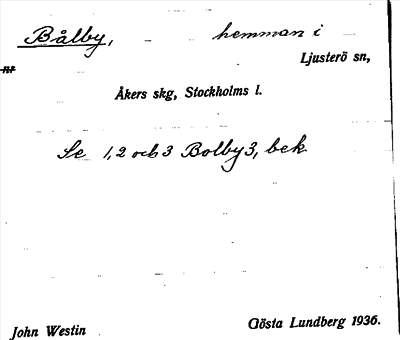 Bålby, hemman i
nr Ljusterö sn,
Åkers skg, Stockholms l.
Se 1, 2 och 3 Bolby 3, bek
John Westin Gösta Lundberg 1936.